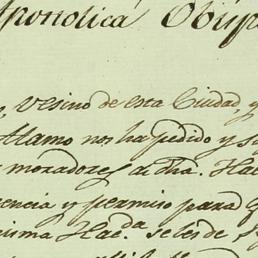 Apostolica Obisp
, Vesino de esta Ciudad, y
Alamo nos ha pedido y s
moradores de dha. Hac
encia y permiso para q
isma Hac.da se les de